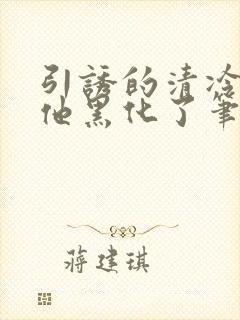 引誘的清冷
他黑化了筆
蔣建琪